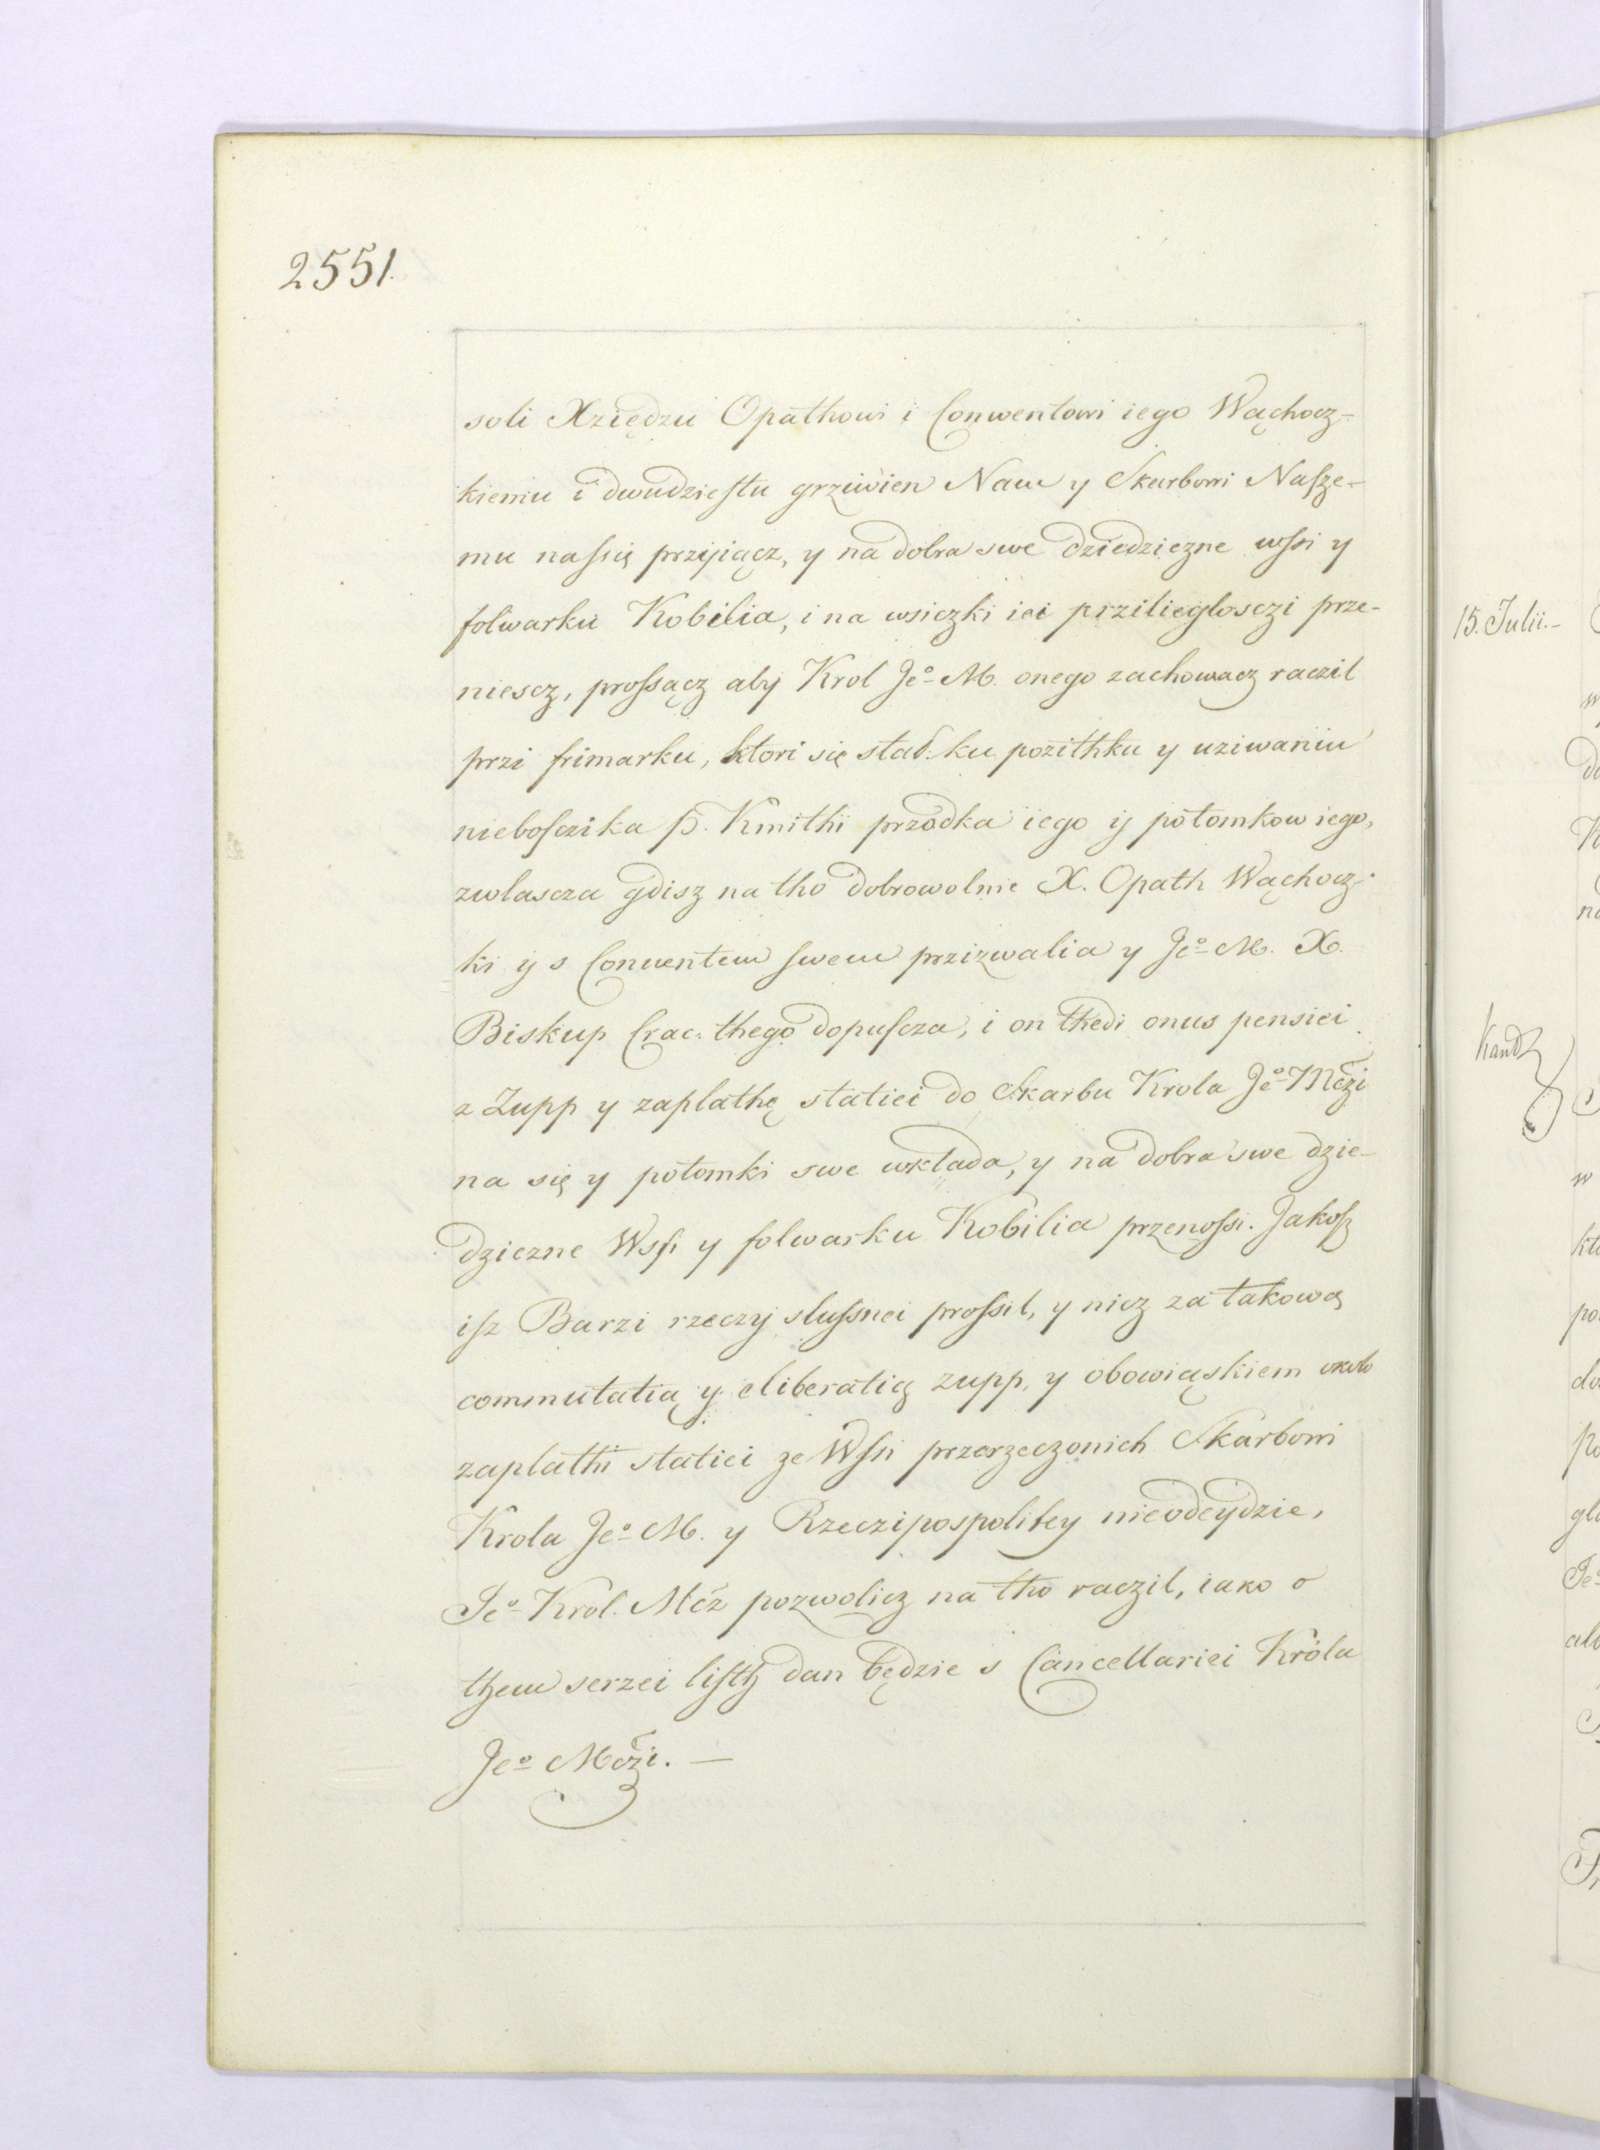 2551.
soli Xziędzu Opathowi i Conwentowi iego Wąchocz-
kiemu i dwudziestu grziwien Nam y Skarbowi Nasze-
mu na się przyiącz, y na dobra swe dziedziczne wssi y
folwarku Kobilia, i na wsiczki iei prziliegłosczi prze-
niescz, prossącz aby Krol Jeº M. onego zachowacz raczil
przi frimarku, ktori się stał ku pozithku y uziwaniu
nieboszczika P. Kmithi przodka iego ij potomkow iego,
zwlascza gdisz na tho dobrowolnie X. Opath Wąchocz-
ki ij s Conuentem swem przizwalia y Jeº M. X.
Biskup Crac. thego dopuscza, i on thedi onus pensiei
z Zupp y zaplathę statiei do Skarbu Krola Jeº Mczi
na się y potomki swe wkłada, y na dobra swe dzie-
dziczne Wssi y folwarku Kobilia przenossi. Jakosz
isz Barzi rzeczy slusznei prossil, y nicz za takową
commutatią y eliberatią zupp, y obowiąskiem około
zaplathi statiei ze Wssi przerzeczonich Skarbowi
Krola Jeº M. y Rzeczipospolitey nieodeydzie,
Jeº Król. Mcź pozwolicz na tho raczil, iako o
them serzei listh dan będzie s Cancellariei Króla
Jeº Mczi. —
15. Julii. –